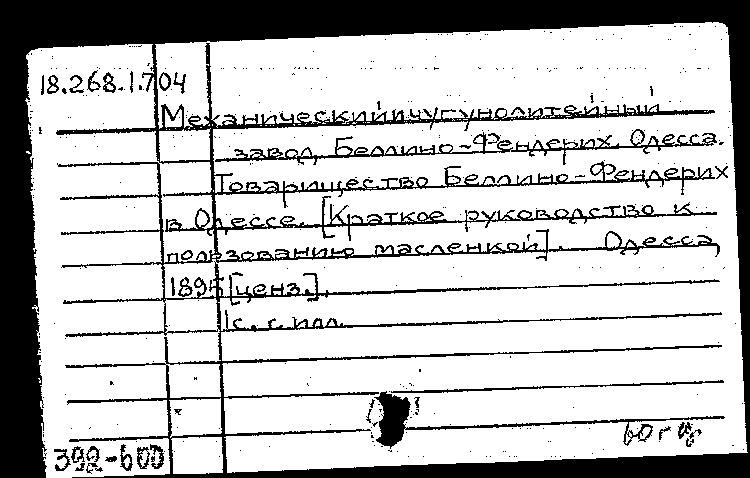 18.268.1.704
Механический и чугунолитейный
завод, Беллино-Фендерих. Одесса.
Товарищество Беллино-Фендерих
в Одессе. [Краткое руководство к
пользованию масленкой]. Одесса,
1895 [ценз.].
1с. с илл.
392-600